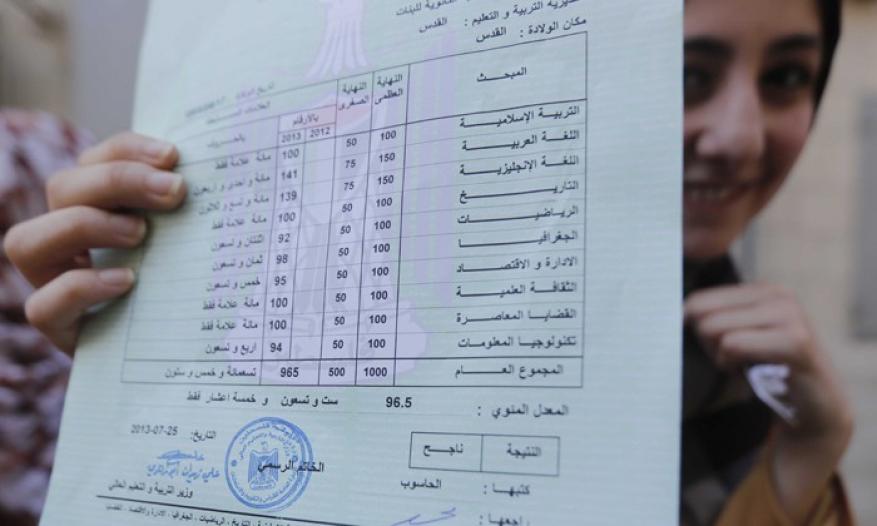 مديرية التربية و التعليم : القدس
مكان الولادة : القدس
المبحث النهاية العظمى النهاية الصغرى بالأرقام 2012 2013
التربية الإسلامية 100 50 100 مائة علامة فقط
اللغة العربية 150 75 141 مائة و احدى و اربعون
اللغة الإنجليزية 150 75 139 مائة و تسع و ثلاثون
التاريخ 100 50 100 مائة علامة فقط
الرياضيات 100 50 92 اثنتان و تسعون
الجغرافيا 100 50 98 ثمان و تسعون
الادارة و الاقتصاد 100 50 95 خمس و تسعون
الثقافة العلمية 100 50 100 مائة علامة فقط
القضايا المعاصرة 100 50 100 مائة علامة فقط
تكنولوجيا المعلومات 100 50 94 اربع و تسعون
المجموع العام 1000 500 965 تسعمائة و خمس و ستون
المعدل المئوي : 96.5 ست و تسعون و خمسة اعشار فقط
النتيجة ناجح
التاريخ: 25-07-2013
كتبها : الحاسوب
الخاتم الرسمي
وزير التربية و التعليم العالي
راجعها :